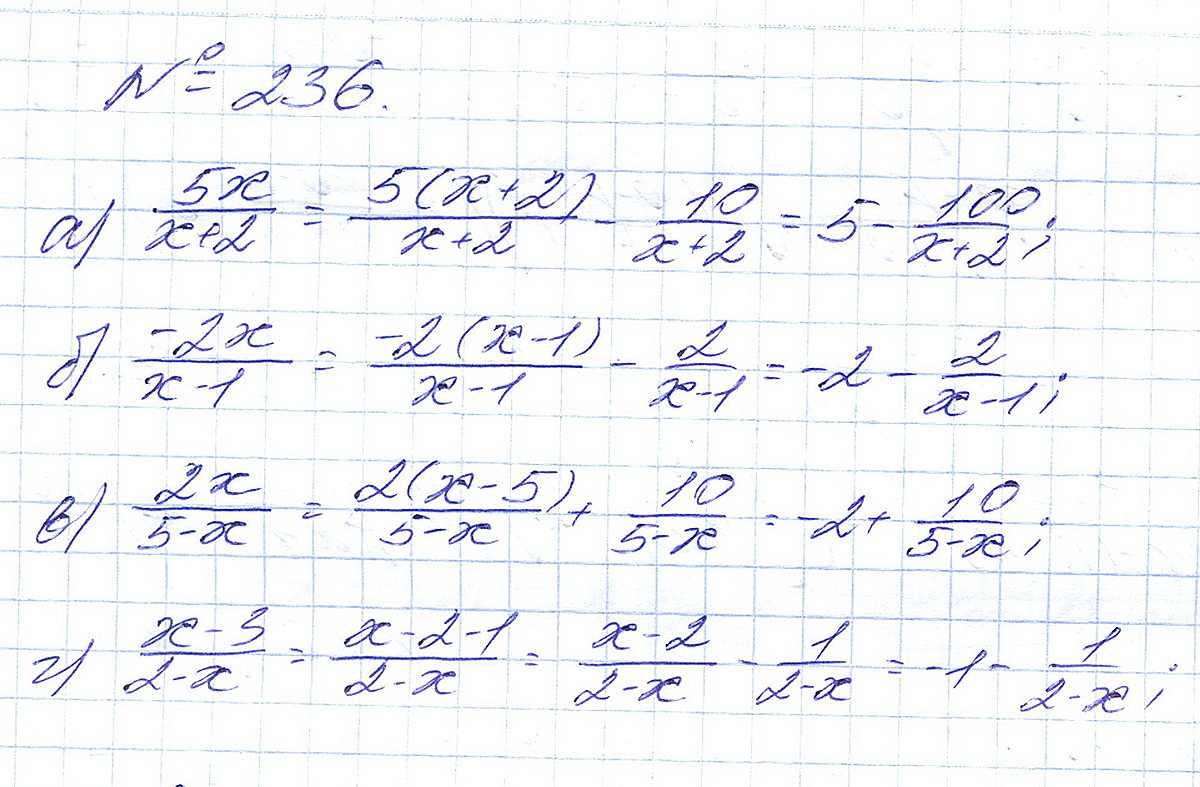 № 236.
а) 5x/(x+2) = 5(x+2)/(x+2) - 10/(x+2) = 5 - 100/(x+2);
б) -2x/(x-1) = -2(x-1)/(x-1) - 2/(x-1) = -2 - 2/(x-1);
в) 2x/(5-x) = 2(x-5)/(5-x) + 10/(5-x) = -2 + 10/(5-x);
г) (x-3)/(2-x) = (x-2-1)/(2-x) = (x-2)/(2-x) - 1/(2-x) = -1 - 1/(2-x);